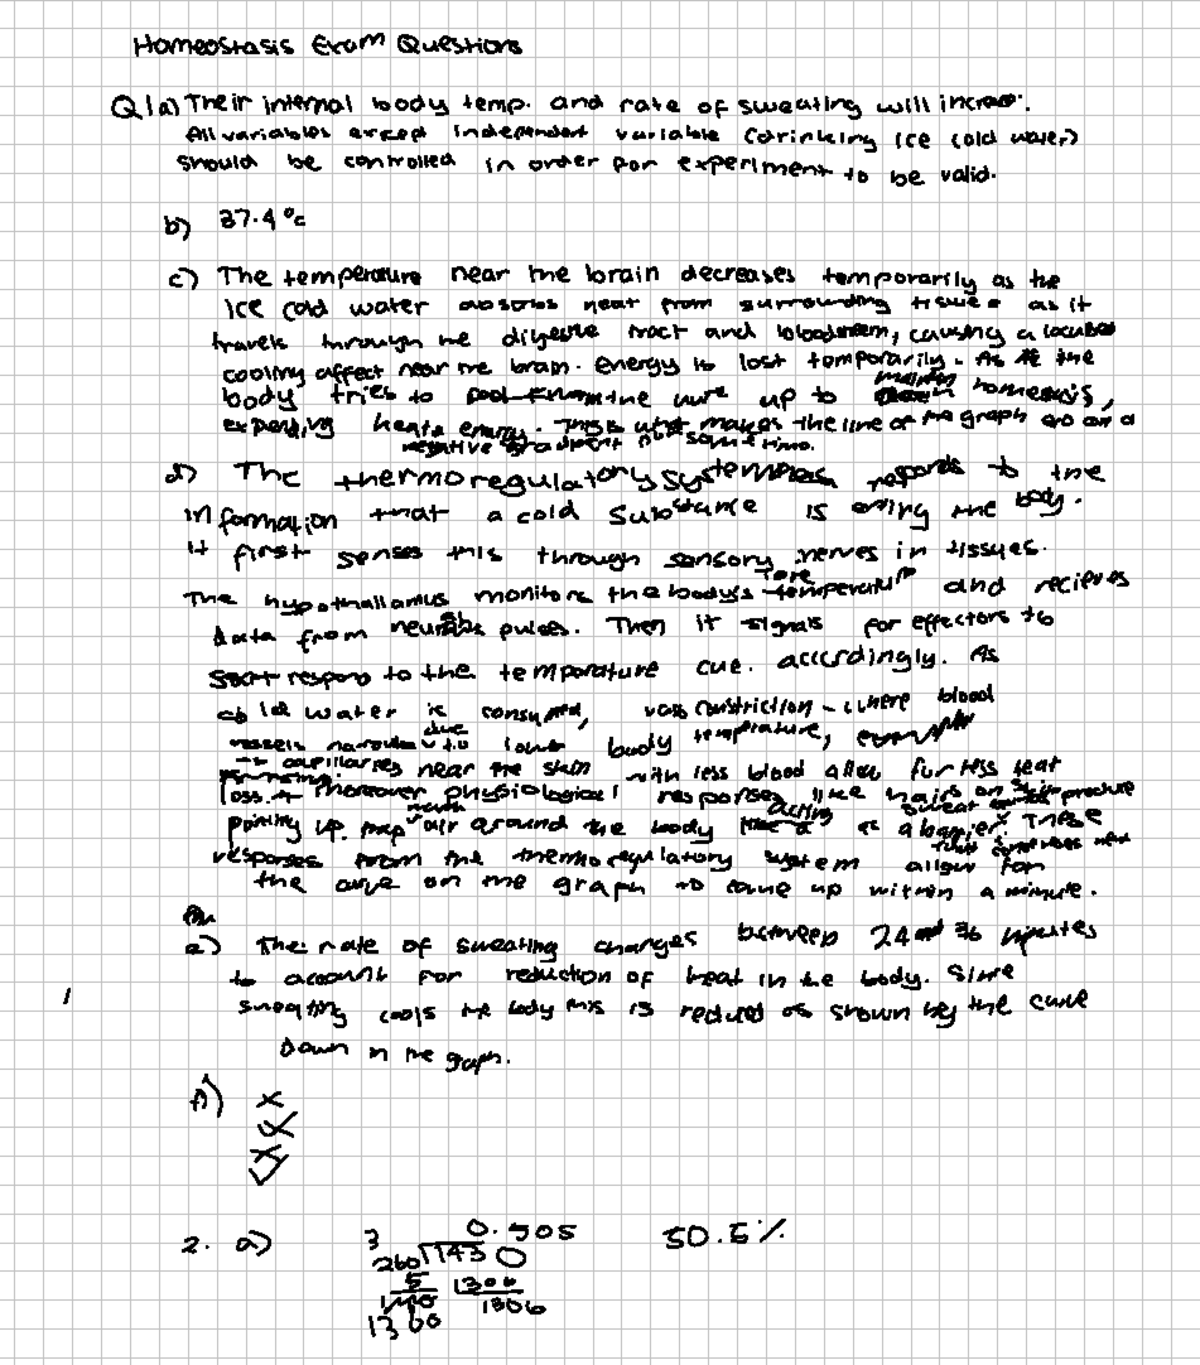 Homeostasis Exam Questions
Q1a) Their internal body temp. and rate of sweating will increase.
All variables except independent variable (drinking ice cold water)
should be controlled in order for experiment to be valid.
b) 37.4°c
c) The temperature near the brain decreases temporarily as the
ice cold water absorbs heat from surrounding tissues as it
travels through the digestive tract and bloodstream, causing a localised
cooling affect near the brain. Energy is lost temporarily. As the
body tries to up to maintain homeostasis,
expending heat energy. This is what makes the line of the graph go on a
negative gradient for some time.
d) The thermoregulatory system responds to the
information that a cold substance is entering the body.
It first senses this through sensory nerves in tissues.
The hypothallamus monitors the body's core temperature and recieves
data from neurons pulses. Then it signals for effectors to
respond to the temperature cue. accordingly. As
cold water is consumed, vasoconstriction - where blood
vessels narrow due to lower body temperature,
capillarries near the skin with less blood allow for less heat
loss. Moreover physiological responses like hairs on skin
pointing up. trap warm air around the body acting as a barrier. These
responses from the thermoregulatory system allow for
the curve on the graph to come up within a minute.
e) The rate of sweating changes between 24 and 36 minutes
to account for reduction of heat in the body. Since
sweating cools the body this is reduced as shown by the curve
down in the graph.
f) x
x
x
✓
2. a) 3 0.505 50.5%
260 1430
5 1300
1300 1300